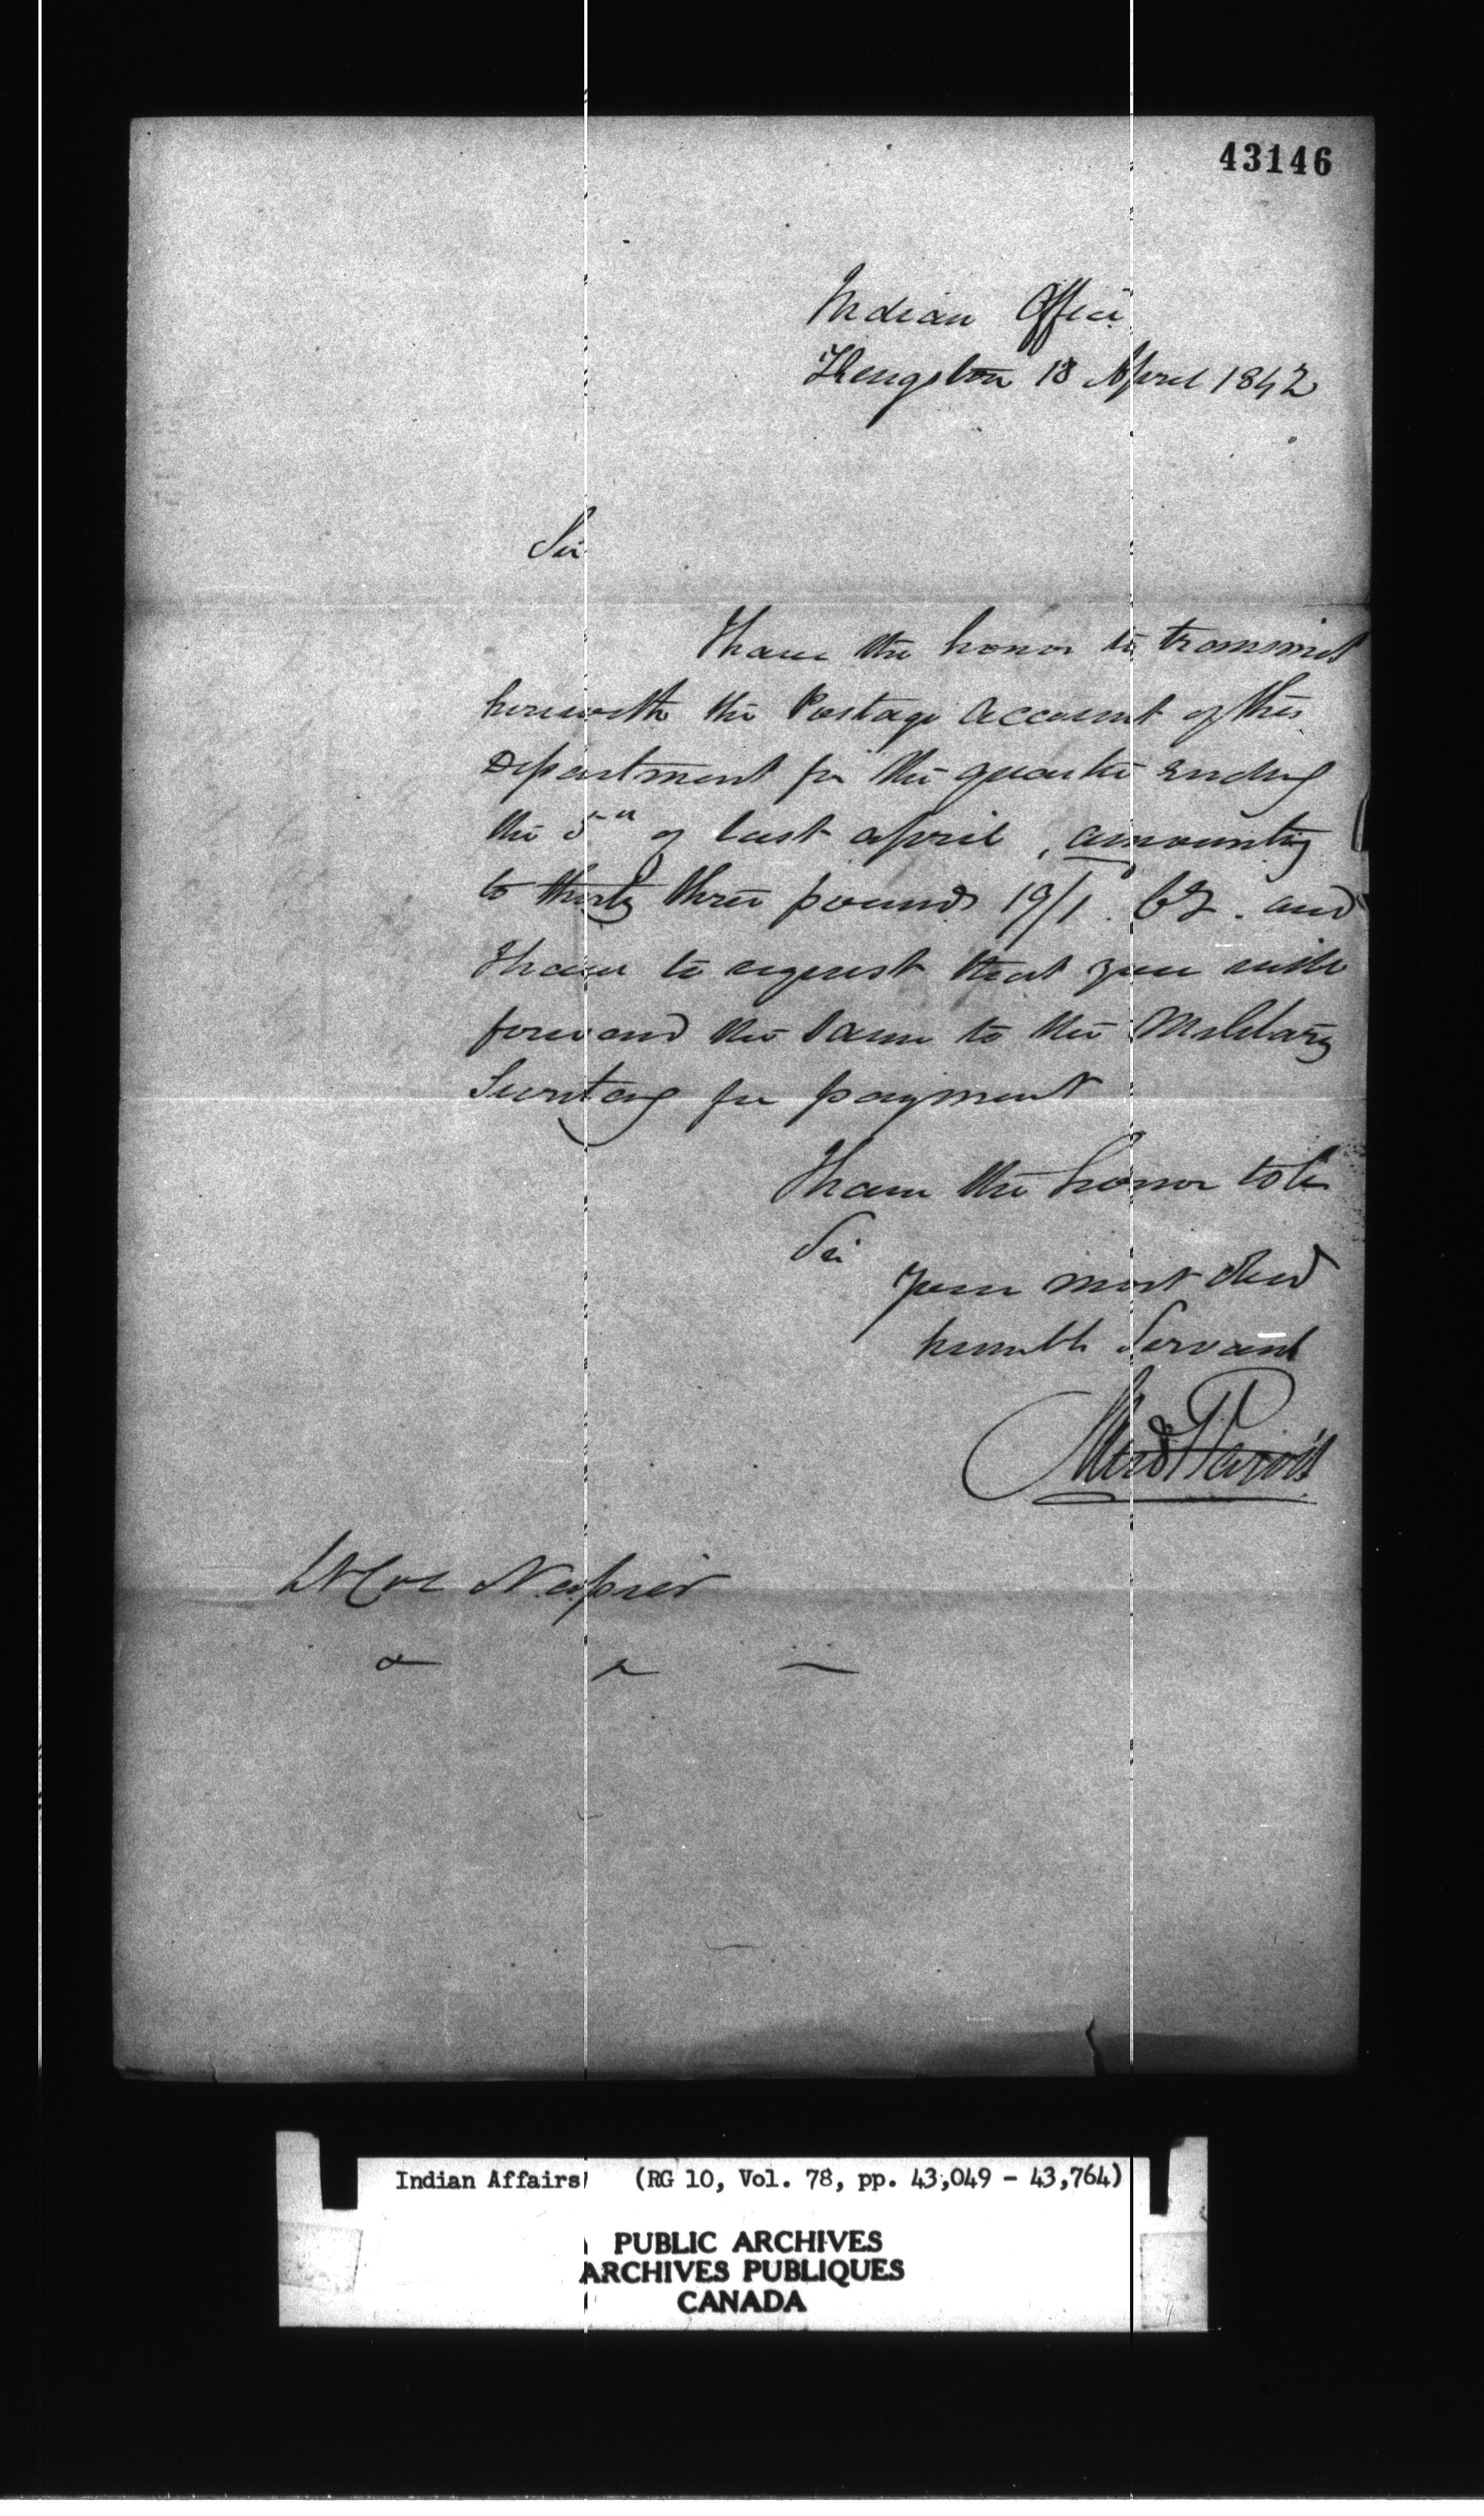 43146
Indian Office
Kingston 18 April 1842
Sir
I have the honor to transmit
herewith the Postage Account of this
Department for the quarter ending
the 5th of last april, amounting
to thirty three pounds 19/1. Cy. and
I have to request that you will
forward the same to the Military
Secretary for payment
I have the honor to be
Sir
Your most obed
humble Servant
Lt Col Napier
Indian Affairs (RG 10, Vol. 78, pp. 43,049 - 43,764)
PUBLIC ARCHIVES
ARCHIVES PUBLIQUES
CANADA